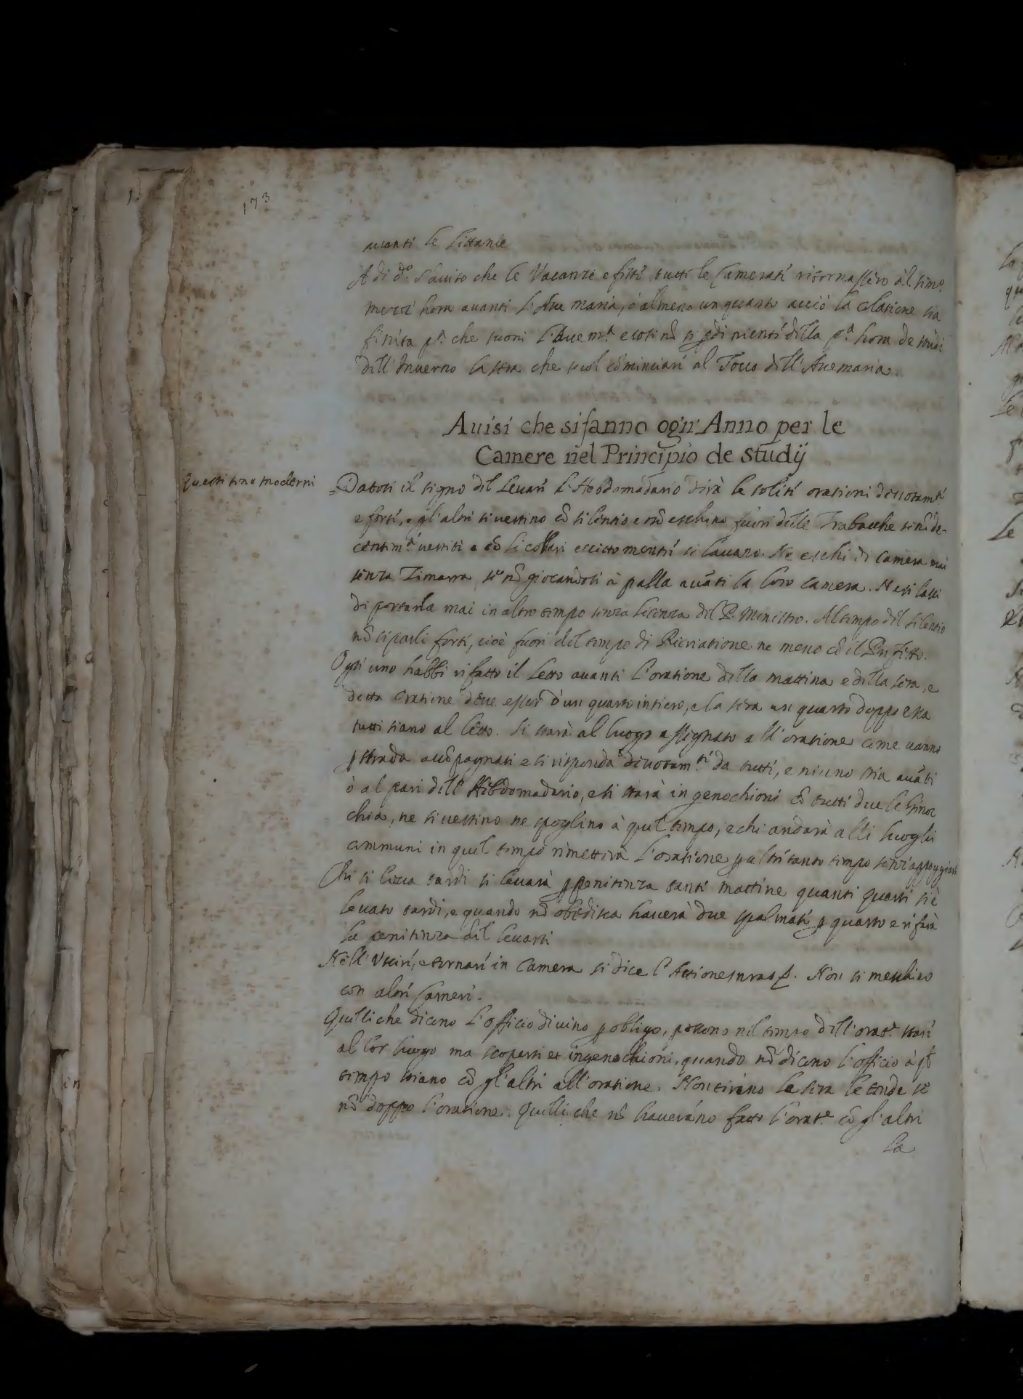 173
avanti le Littanie
A di d.o s'aviso che le Vacanze e feste tutte le Camerate ritornassero al
mezz' hora avanti l'Ave maria, ò almeno un quarto acciò la Colatione sia
finita p.a che suoni l'Ave m.a e cosi nō si ꝑdi niente della p.a hora de studi
dell' Inverno la sera che suol cōminciare al Tocco dell' Avemaria.
Avisi che si fanno ogn' Anno per le
Camere nel Principio de studij
Questi sono moderni
Datosi il segno del levare l'Hebdomadario dirà le solite orationi devotam.te
e forte, e gl'altri si vestino cō silentio e nō eschino fuori delle Trabacche se nō de-
centem.te vestiti e cō li collari eccetto mentre si lavano. Ne eschi di camera mai
senza Zimarra se nō giocandosi à palla avāti la loro camera. Ne si lassi
di portarla mai in altro tempo senza licenza del P. Ministro. Al tempo del silentio
nō si parli forte, cioè fuori del tempo di Ricreatione ne meno cō il Prefetto.
Ogn' uno habbi rifatto il letto avanti l'oratione della mattina e della sera, e
detta oratione deve essere d'un quarto intiero, e la sera un quarto doppo essa
tutti siano al letto. Si starà al luogo assegnato all'oratione come vanno
ꝑ strada accōpagnati e si risponda devotam.te da tutti, e niuno stia avāti
ò al pari dell' Hebdomadario, e si starà in genochioni cō tutti due le Ginoc
chia, ne si vestino ne spoglino à quel tempo, e chi andarà alli luoghi
communi in quel tempo rimetterà l'oratione ꝑ altretanto tempo senz'appoggiarsi
Chi si leva tardi si levarà ꝑ penitenza tante mattine quanti quarti si è
levato tardi, e quando nō obedisca haverà due spalmate ꝑ quarto e rifarà
la penitenza del levarsi
Nell' Uscire, e tornare in Camera si dice l'Actiones nr̃as &. Non si meschino
con altre Camere.
Quelli che dicono l'officio divino ꝑ obligo, possono nel tempo dell'orat.e stare
al lor luogo ma scoperti et ingenochioni, quando nō dicono l'officio à q.to
tempo siano cō gl'altri all'oratione. Non tirino la sera le tende se
nō doppo l'oratione. Quelli che nō haveranno fatto l'orat.e cō gl'altri
la